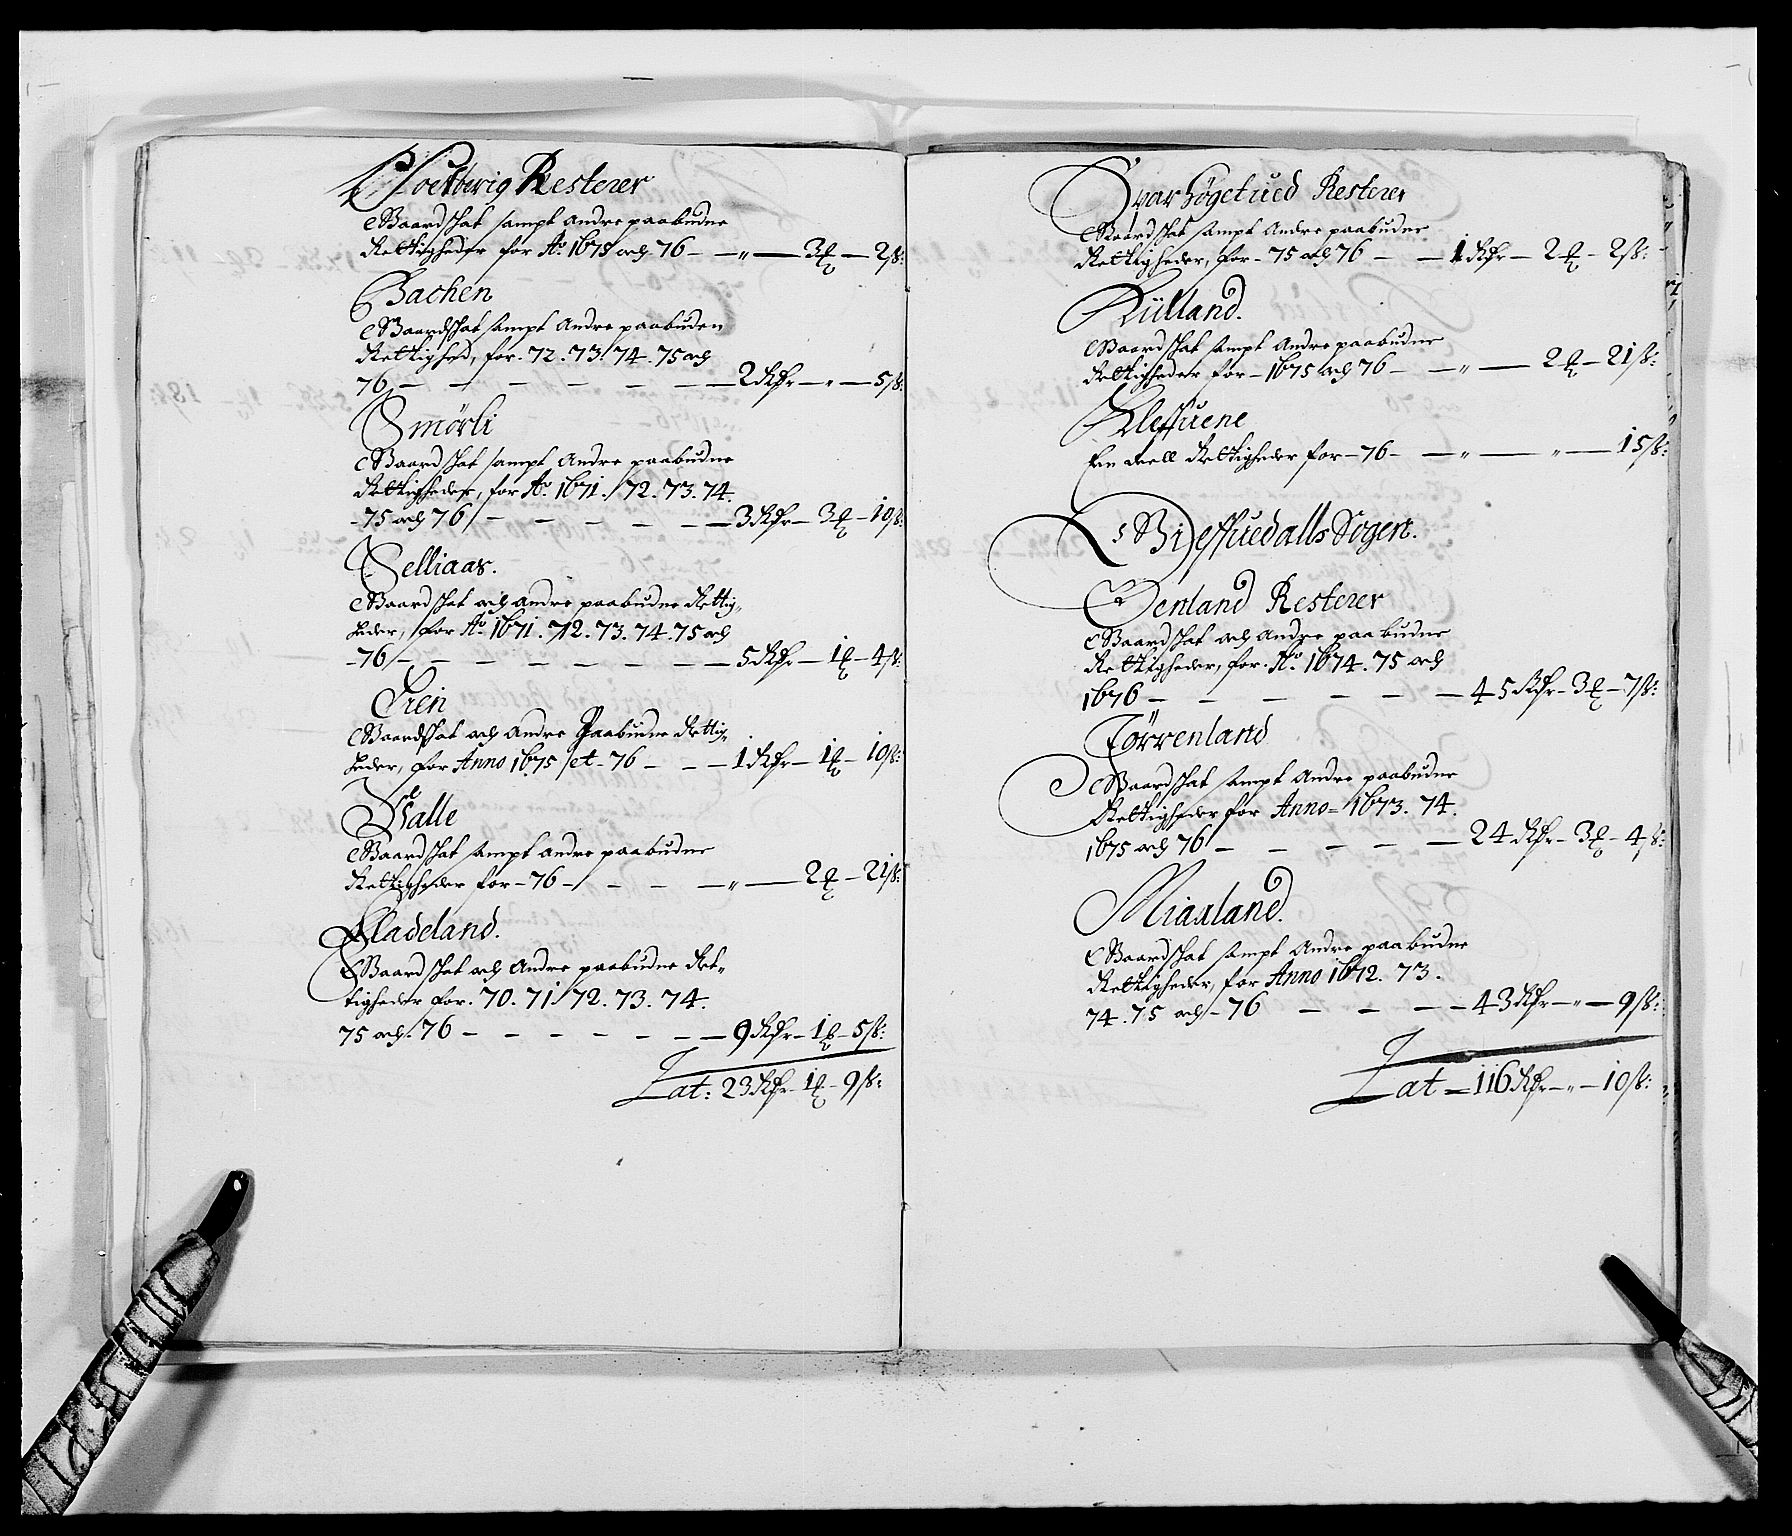 Hoelberig Resterer
Gaardskat sampt Andre paabudne
Rettigheder for Ao. 1675 och 76 — — „ — 3 ℔ — 2 ß:
Bachen
Gaardskat sampt Andre paabuden
Rettighed, for. 72. 73. 74. 75 och
76, — — — — — — 2 Rdr — „ — 5 ß:
Smörli
Gaardskat sampt Andre paabudne
Rettigheder, for Ao. 1671. 72. 73. 74.
- 75 och 76 — — — — — 3 Rdr — 3 ℔ — 10 ß:
Selliaas.
Gaardskat och Andre paabudne Rettig„
heder, for Ao. 1671. 72. 73. 74. 75 och
- 76 — — — — — — 5 Rdr — 1 ℔ — 4 ß:
Trein
Gaardskat och Andre Paabudne Rettig„
heder, for Anno 1675 et - 76 — — — 1 Rdr — 1 ℔ — 10 ß:
Valle
Gaardskat sampt andre paabudne
Rettigheder for - 76 — — — — „ — 2 ℔ — 21 ß:
Fladeland.
Gaardskat och Andre paabudne Ret„
tigheder for. 70. 71. 72. 73. 74.
75 och. 76 — — — — — — 9 Rdr — 1 ℔ — 5 ß:
Lat: 23 Rdr — 1 ℔ — 9 ß:
Svarhögetued Resterer
Gaardskat sampt Andre paabudne
Rettigheder, for - 75 och 76 — — 1 Rdr — 2 ℔ — 2 ß:
Rülland.
Gaardskat sampt Andre paabudne
Rettigheder for - 1675 och 76 — — „ — 2 ℔ — 21 ß:
Klefsuene
Een deell Rettigheder for - 76 — — „ — „ — 15 ß:
Befsuedalls Sogen.
Denland Resterer
Gaardskat och Andre paabudne
Rettigheder, for. Ao 1674. 75 och
1676 — — — — — — 45 Rdr — 3 ℔ — 7 ß:
Förrenland
Gaardskat sampt Andre paabudne
Rettigheder for Anno = 1673. 74.
1675 och 76 — — — — — 24 Rdr — 3 ℔ — 4 ß:
Miaaland.
Gaardskat sampt Andre paabudne
Rettigheder, for Anno 1672. 73.
74. 75 och - 76 — — — — 43 Rdr — „ — 9 ß:
Lat — 116 Rdr — „ — 10 ß: